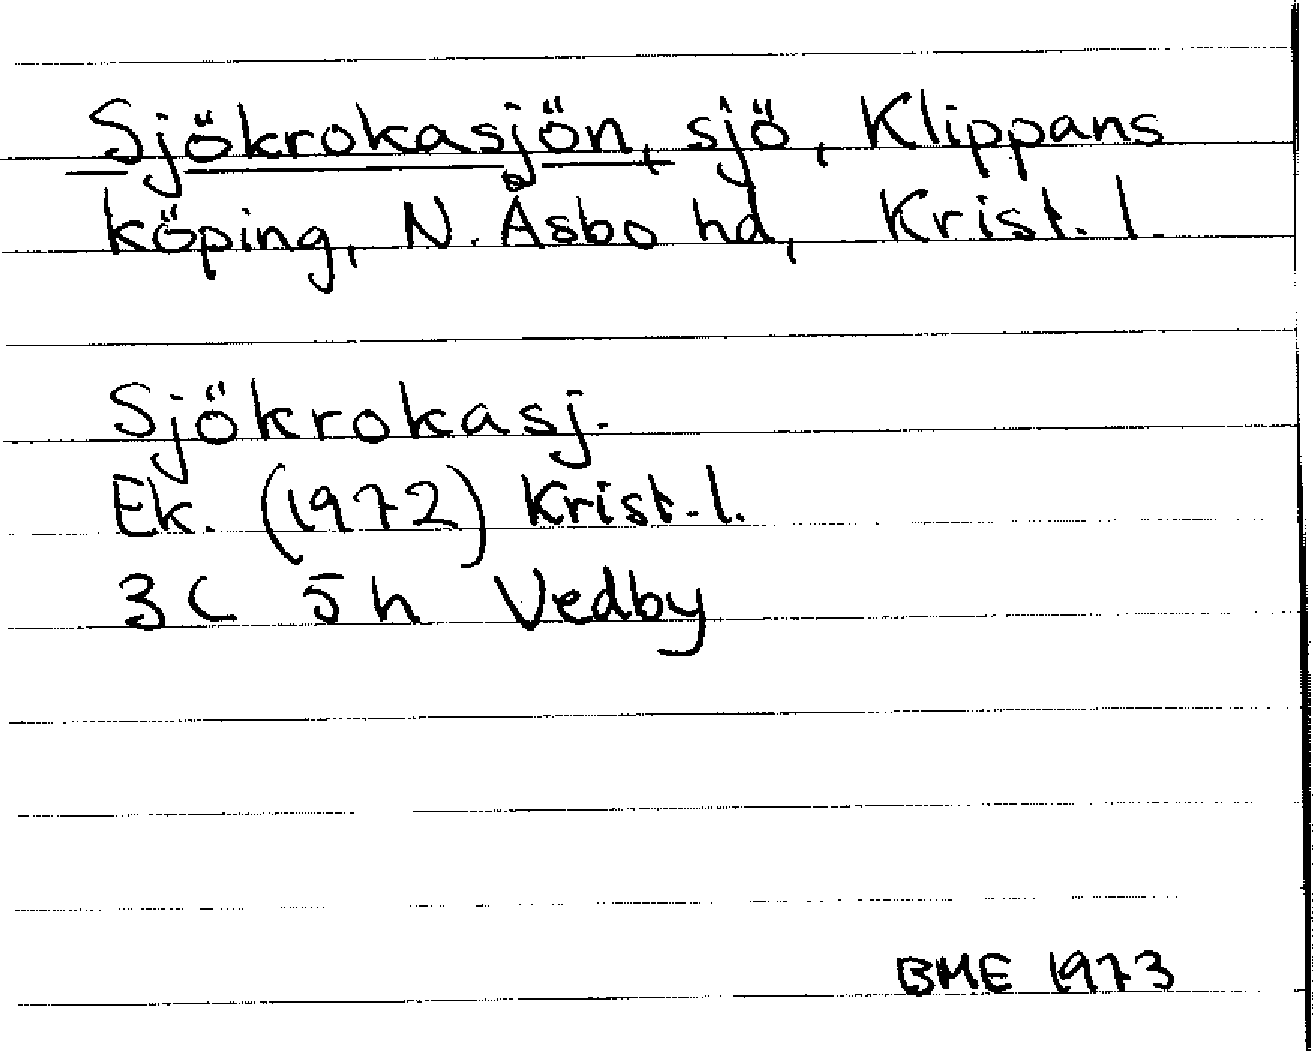 Sjökrokasjön, sjö, Klippans
köping, N. Åsbo hd, Krist. l.
Sjökrokasj.
Ek. (1972) Krist. l.
3C 5h Vedby
BME 1973